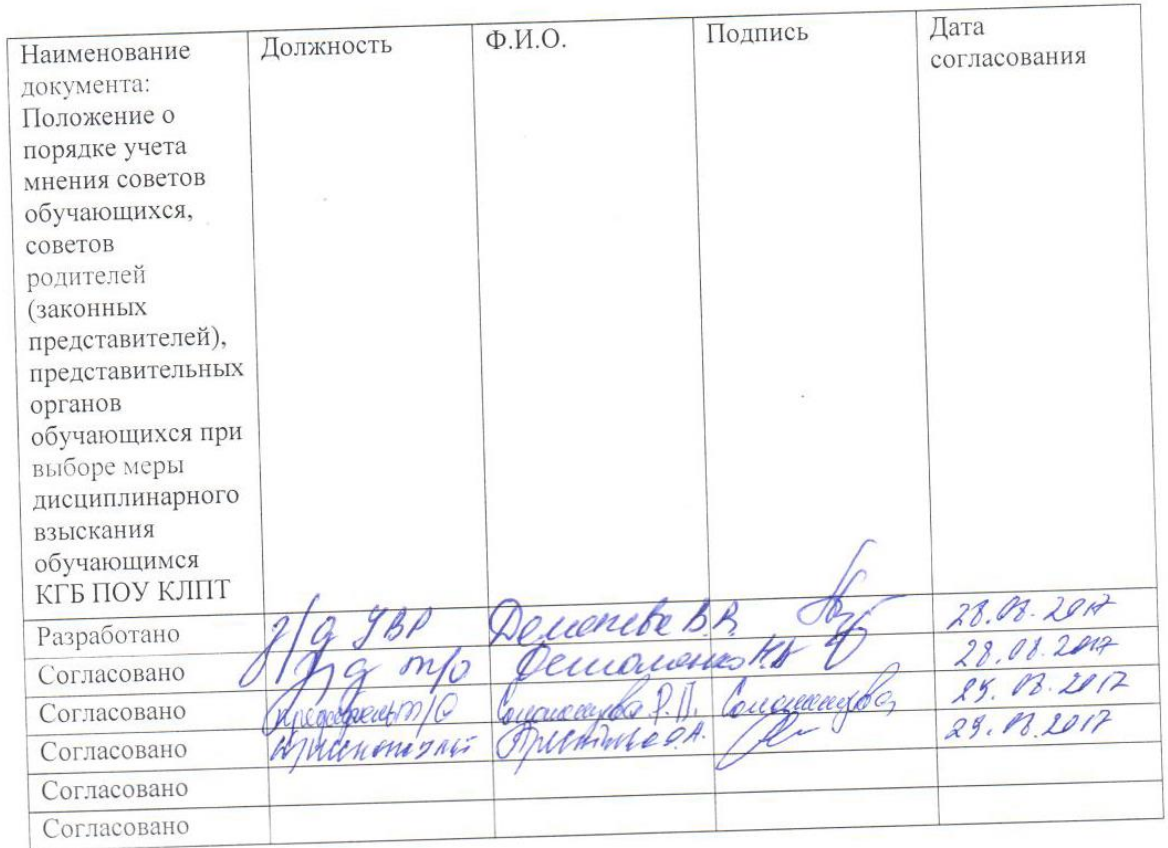 Наименование
документа:
Положение о
порядке учета
мнения советов
обучающихся,
советов
родителей
(законных
представителей),
представительных
органов
обучающихся при
выборе меры
дисциплинарного
взыскания
обучающимся
КГБ ПОУ КЛПТ
Должность
Ф.И.О.
Подпись
Дата
согласования
Разработано з/д УВР В.В. 28.08.2017
Согласовано п/о 28.08.2017
Согласовано п/о Р.П. 29.08.2017
Согласовано О.А. 29.08.2017
Согласовано
Согласовано